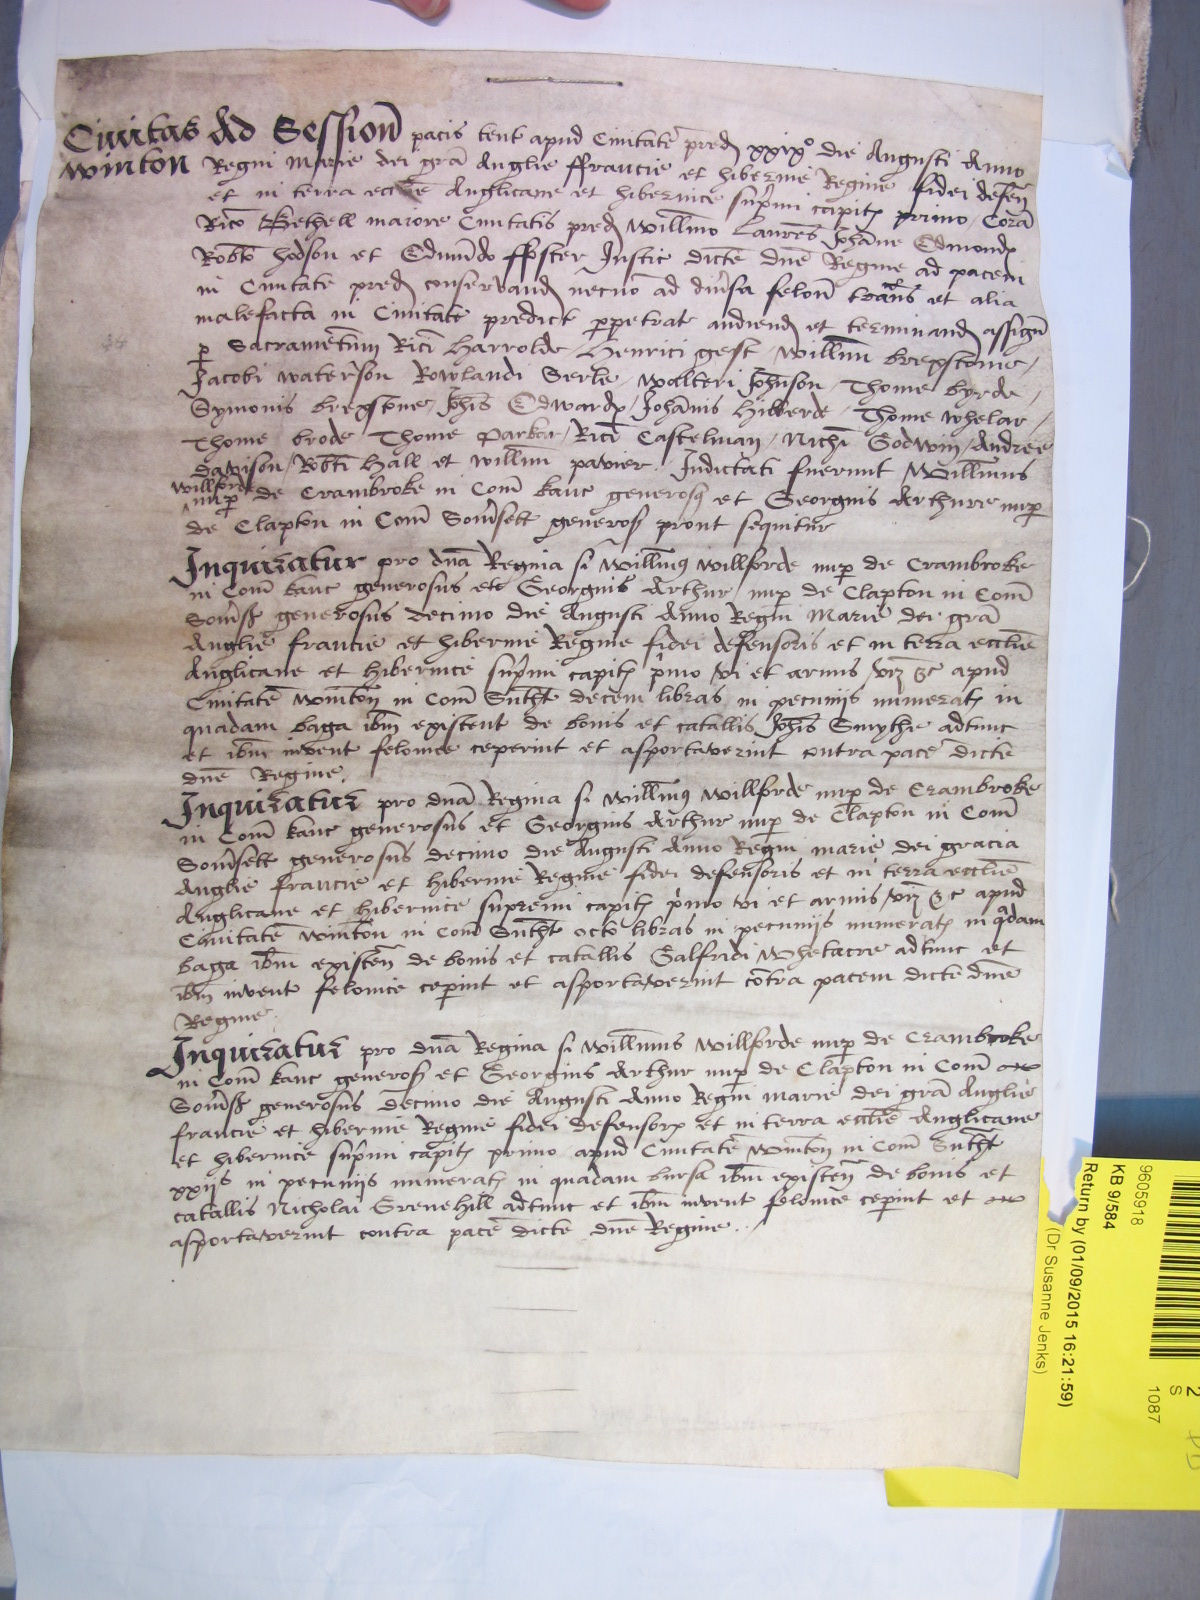 Civitas Ad Session pacis tent apud Civitatē pred xxixo die Augusti Anno
Winton Regni Marie dei grā Anglie ffrancie et hibernie Regine fidei defen
et in terra eccłie Anglicane et hibernice supmi capitis primo Corā
Rico Bethell maiore Civitatis pred Willmo Laurens Johāne Edmond
Robto hodson et Edmūdo ffoster Justic dicte dne Regine ad pacem
in Civitate pred conservand necnō ad divsa felon trans et alia
malefacta in Civitate predict ppetrat audiend et terminand assign
p Sacrametum Rici Harrolde Henrici gest Willmi brexstone
Jacobi Waterson Rowlandi Serle Walteri Johnson Thome byrde
Symonis brexstone Johis Edward Johānis Hibberde Thome Whelar
Thome brode Thome Parkar Rici Castelman Nichi Godwin Andree
dawison Robti Hall et Willmi pavier Indictati fuerunt Willmus
Willforde
nup de Crambroke in Com kanc generosus et Georgius Arthure nup
de Clapton in Com Somsett generos prout sequitur
Inquiratur pro dna Regina si Willmus Willforde nup de Crambroke
in Com kanc generosus et Georgius Arthur nup de Clapton in Com
Somss generosus decimo die Augusti Anno Regni Marie dei grā
Anglie francie et hibernie Regine fidei defensoris et in terra eccłie
Anglicane et hibernice supmi capitis pmo vi et armis viz &c apud
Civitatē Winton in Com Sutht decem libras in pecunijs numeratis in
quadam baga ibm existent de bonis et catallis Johis Smythe adtunc
et ibm invent felonice ceperint et asportaverint contra pacē dicte
dne Regine
Inquiratur pro dna Regina si Willmus Willforde nup de Crambroke
in Com kanc generosus et Georgius Arthur nup de Clapton in Com
Somsett generosus decimo die Augusti Anno Regni marie dei gracia
Anglie francie et hibernie Regine fidei defensoris et in terra eccłie
Anglicane et hibernice supremi capitis pmo vi et armis viz &c apud
Civitatē Winton in Com Sutht octo libras in pecunijs numeratis in qadam
baga ibm existen de bonis et catallis Galfridi Whetacre adtunc et
ibm invent felonice cepint et asportaverint cōtra pacem dicte dne
Regine
Inquiratur pro dna Regina si Willmus Willforde nup de Crambroke
in Com kanc generos et Georgius Arthur nup de Clapton in Com
Somss generosus decimo die Augusti Anno Regni marie dei grā Anglie
francie et hibernie Regine fidei defensor et in terra eccłie Anglicane
et hibernice supmi capitis primo apud Civitatē Winton in Com Sutht
xxijs in pecunijs numeratis in quadam bursa ibm existen de bonis et
catallis Nicholai Grenehill adtunc et ibm invent felonice cepint et
asportaverint contra pacē dicte dne Regine
9605918
KB 9/584
Return by (01/09/2015 16:21:59)
(Dr Susanne Jenks)
2
S
1087